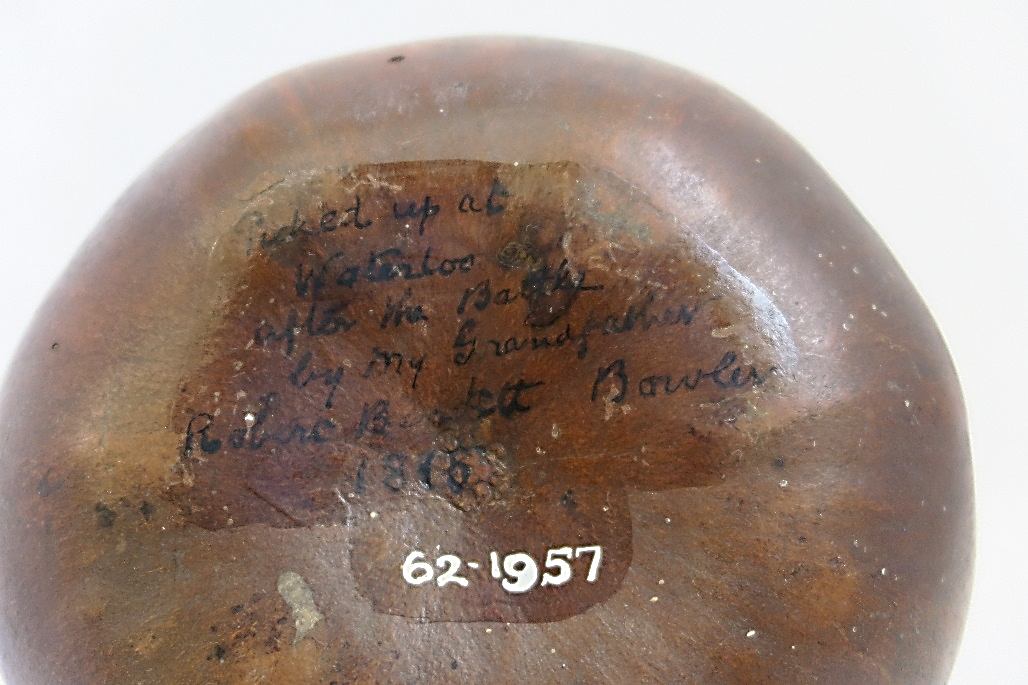 Picked up at
Waterloo
after the Battle
by my Grandfather
Robert Bowler
62-1957